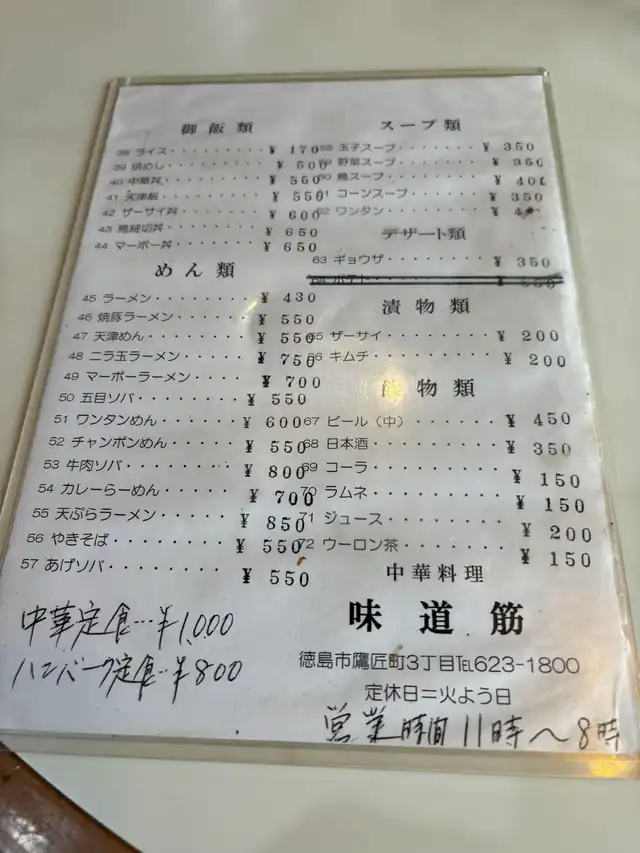 御飯類
38 ライス・・・・・・・・・¥ 170
39 焼めし・・・・・・・・・¥ 500
40 中華丼・・・・・・・・・¥ 550
41 天津飯・・・・・・・・・¥ 550
42 ザーサイ丼・・・・・・・¥ 600
43 鳥細切丼・・・・・・・・¥ 650
44 マーボー丼・・・・・・・¥ 650
めん類
45 ラーメン・・・・・・・・¥ 430
46 焼豚ラーメン・・・・・・¥ 550
47 天津めん・・・・・・・・¥ 550
48 ニラ玉ラーメン・・・・・¥ 750
49 マーボーラーメン・・・・¥ 700
50 五目ソバ・・・・・・・・¥ 550
51 ワンタンめん・・・・・・¥ 600
52 チャンポンめん・・・・・¥ 550
53 牛肉ソバ・・・・・・・・¥ 800
54 カレーらーめん・・・・・¥ 700
55 天ぷらラーメン・・・・・¥ 850
56 やきそば・・・・・・・・¥ 550
57 あげソバ・・・・・・・・¥ 550
中華定食…¥1,000
ハンバーグ定食…¥800
スープ類
58 玉子スープ・・・・・・・¥ 350
59 野菜スープ・・・・・・・¥ 350
60 鳥スープ・・・・・・・・¥ 400
61 コーンスープ・・・・・・¥ 350
62 ワンタン・・・・・・・・¥
デザート類
63 ギョウザ・・・・・・・・¥ 350
64 ポテト・・・・・・・・・¥
漬物類
65 ザーサイ・・・・・・・・¥ 200
66 キムチ・・・・・・・・・¥ 200
飲物類
67 ビール（中）・・・・・・¥ 450
68 日本酒・・・・・・・・・¥ 350
69 コーラ・・・・・・・・・¥ 150
70 ラムネ・・・・・・・・・¥ 150
71 ジュース・・・・・・・・¥ 200
72 ウーロン茶・・・・・・・¥ 150
中華料理
味道筋
徳島市鷹匠町3丁目℡623-1800
定休日＝火よう日
営業時間 11時〜8時